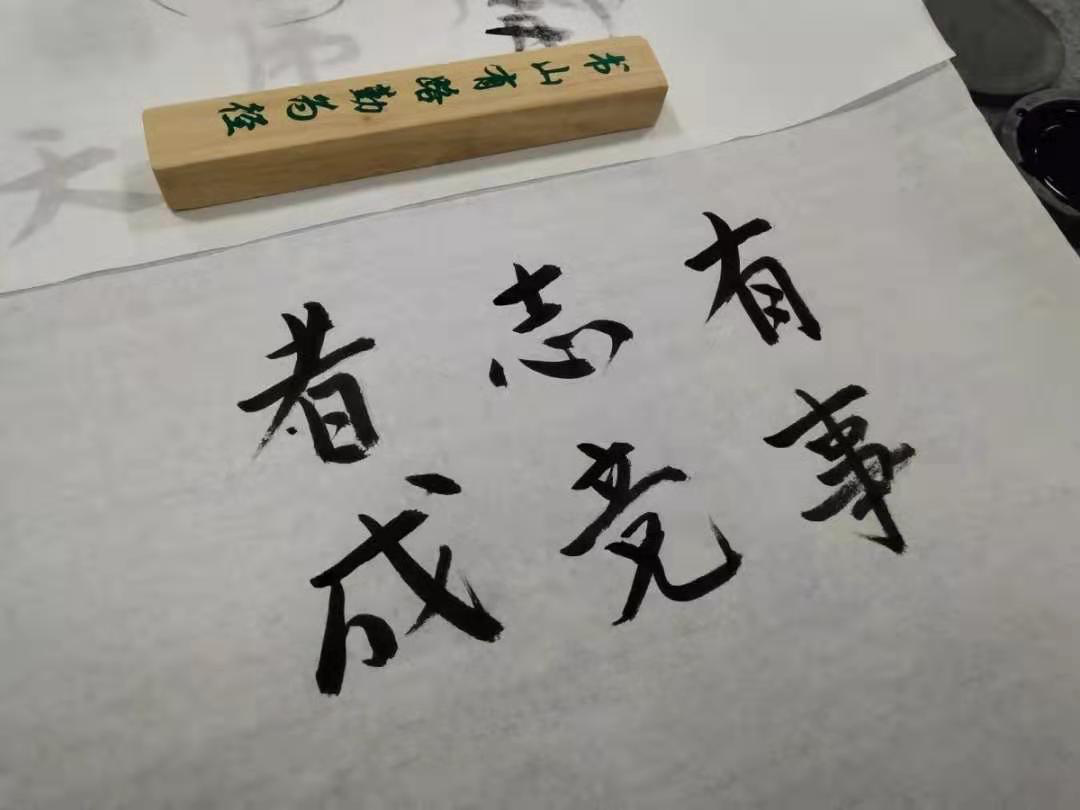 书山有路勤为径
有志者
事竟成